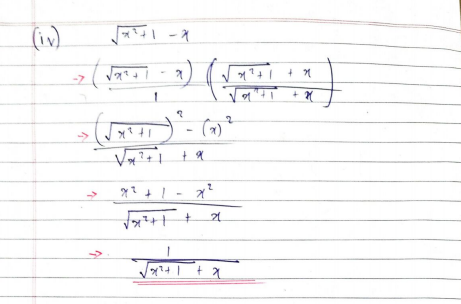 (iv) √(x²+1) - x
→ (√(x²+1) - x)/1 (√(x²+1) + x / √(x²+1) + x)
→ (√(x²+1))² - (x)² / √(x²+1) + x
→ x² + 1 - x² / √(x²+1) + x
→ 1 / √(x²+1) + x